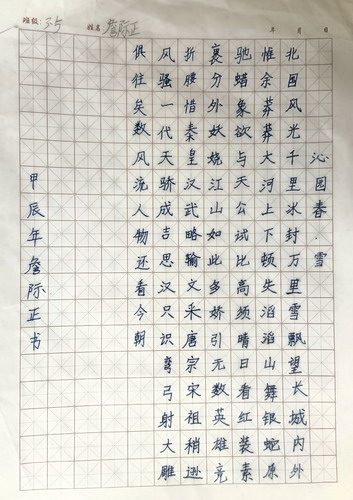 班级: 3-5 姓名 詹际正 年 月 日
沁园春·雪
北国风光千里冰封万里雪飘望长城内外
惟余莽莽大河上下顿失滔滔山舞银蛇原
驰蜡象欲与天公试比高须晴日看红装素
裹分外妖娆江山如此多娇引无数英雄竞
折腰惜秦皇汉武略输文采唐宗宋祖稍逊
风骚一代天骄成吉思汉只识弯弓射大雕
俱往矣数风流人物还看今朝
甲辰年詹际正书